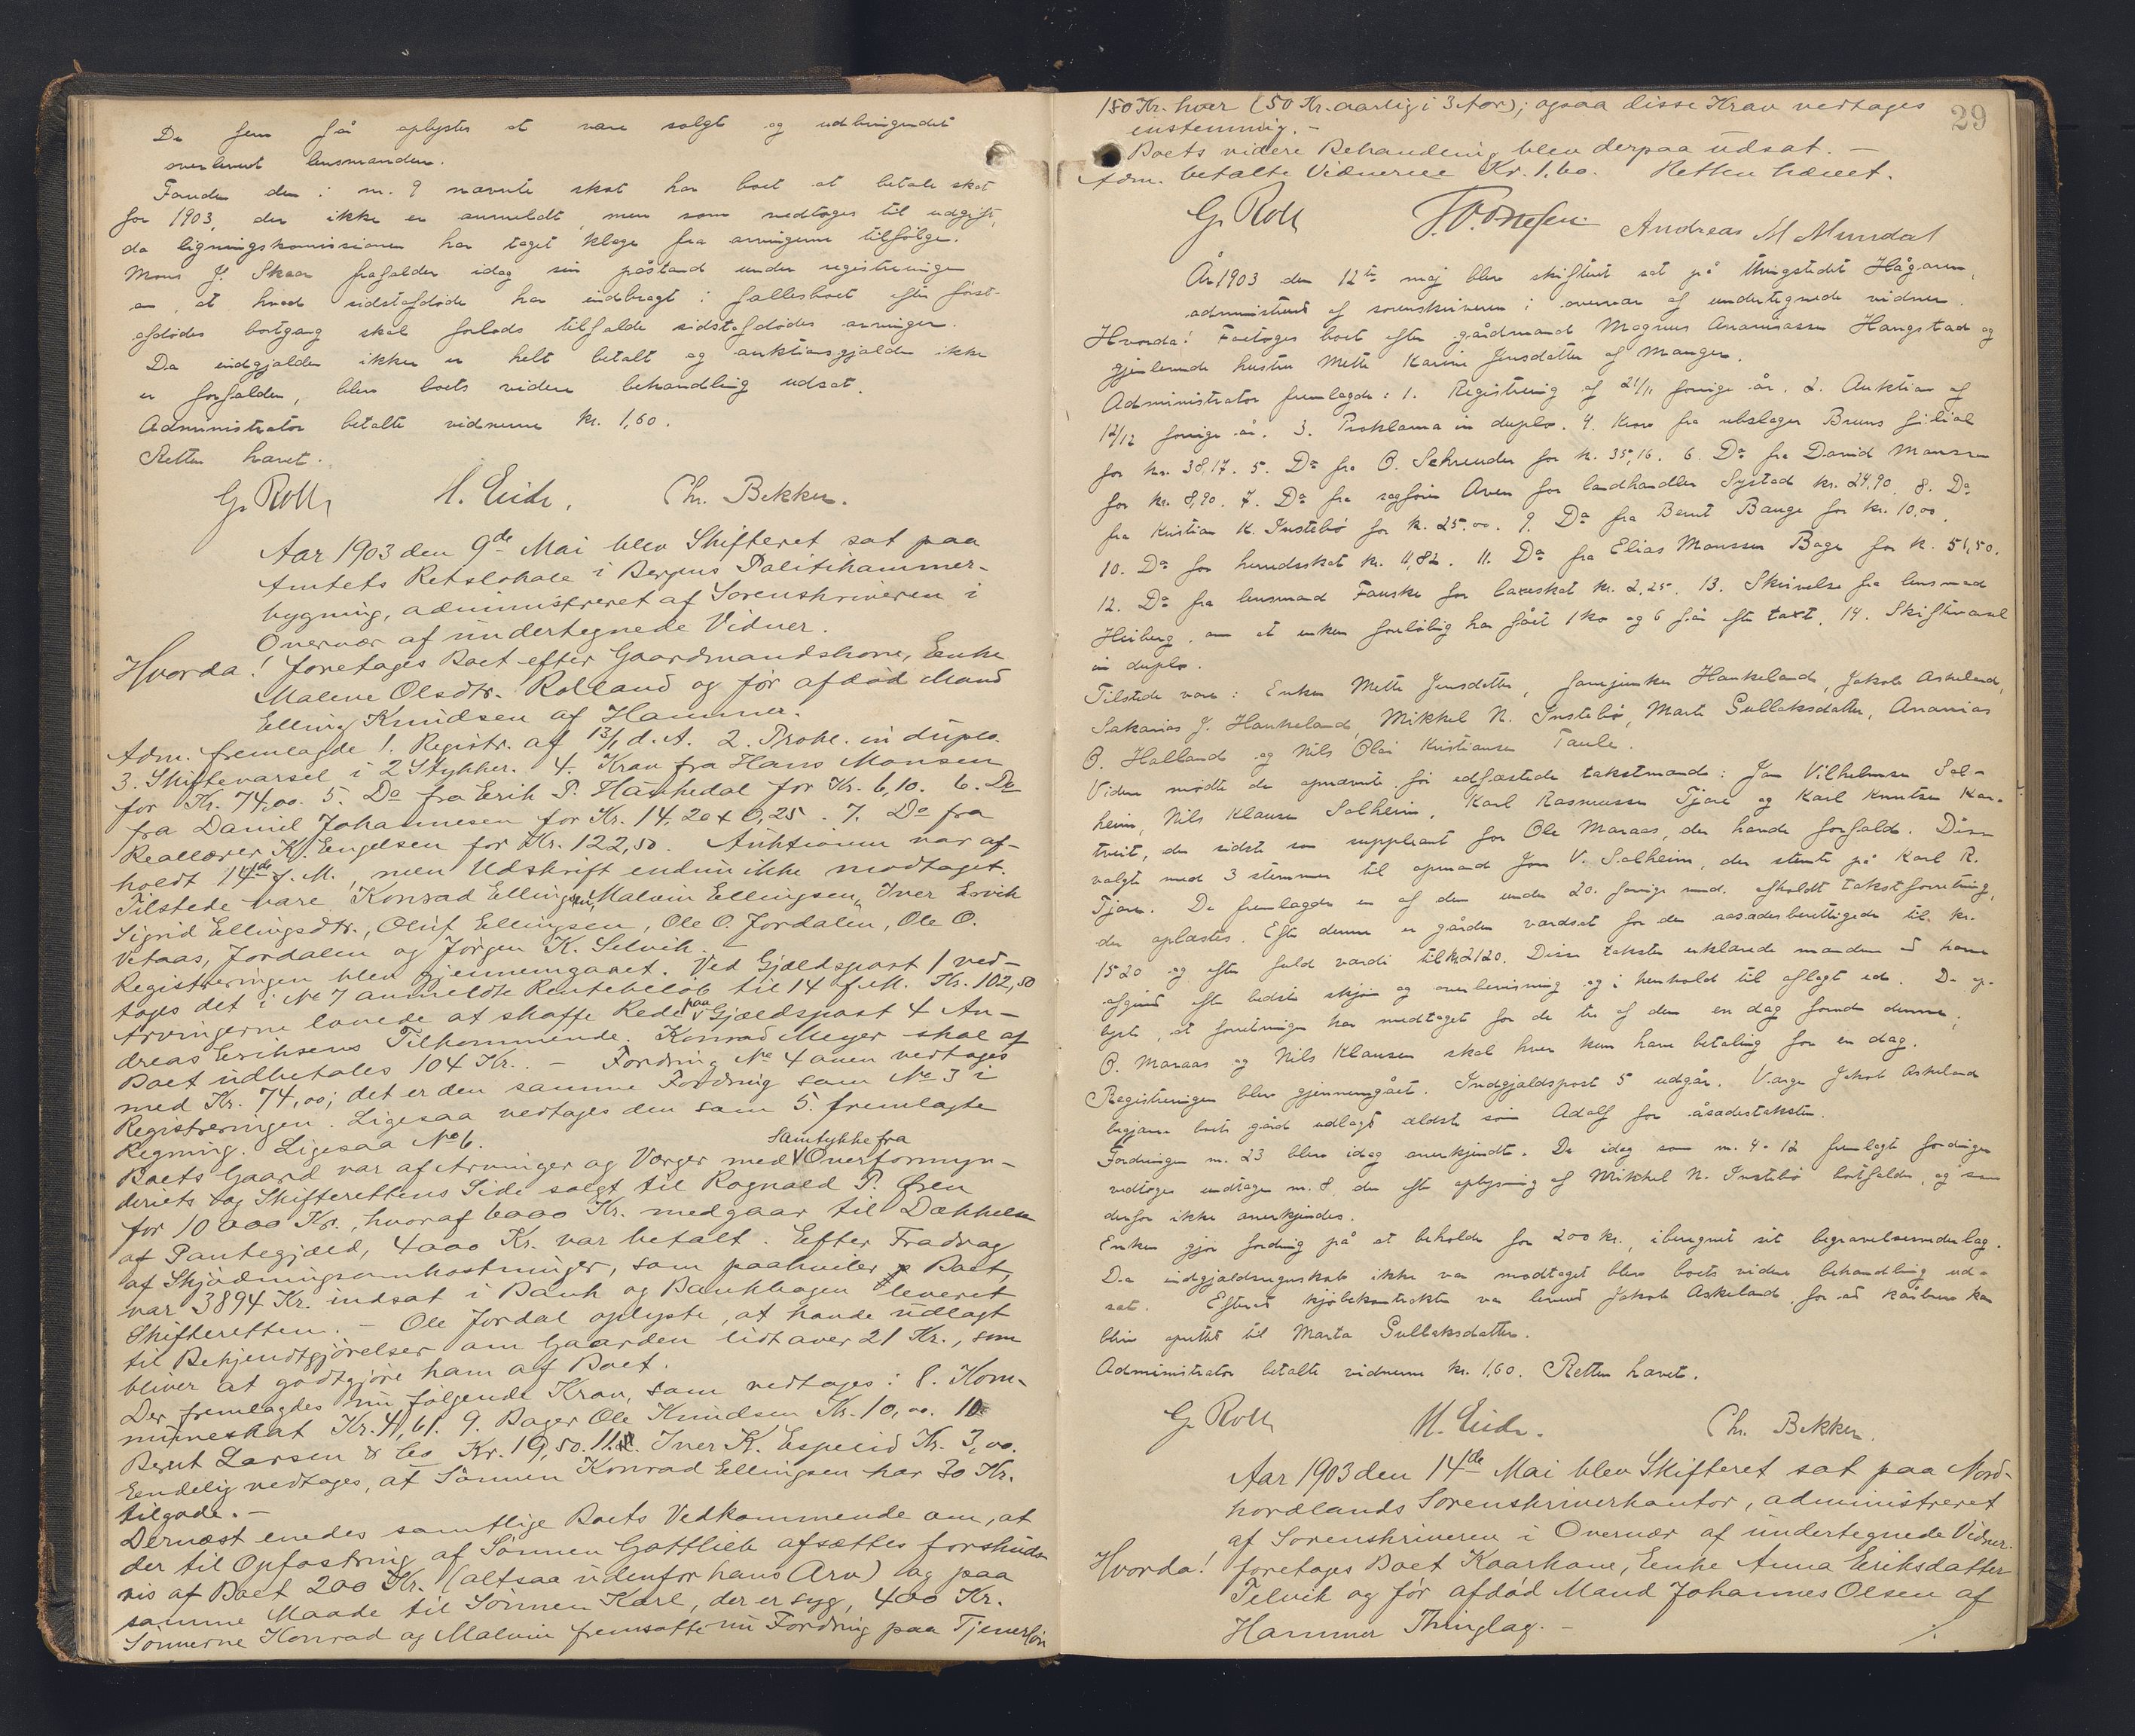 De fem får oplystes at være solgt og udbringendet
overleveret lensmanden.
Foruden den i nr. 9 nævnte skat har boet at betale skat
for 1903, der ikke er anmeldt, men som vedtoges til udgift,
da ligningskommissionen har taget klage fra arvingerne tilfølge.
Mons J. Skaar frafalder idag sin påstand under registreringen
om, at hvad sidstafdøde har indbragt i fællesboet efter først-
afdødes bortgang skal forlods tilfalde sidstafdødes arvinger.
Da indgjælden ikke er helt betalt og auktionsgjælden ikke
er forfalden, blev boets videre behandling udsat.
Administrator betalte vidnerne kr. 1,60.
Retten hævet.
G. Roll, H. Eide, Chr. Bekker.
Aar 1903 den 9de Mai blev Skifteret sat paa
Amtets Retslokale i Bergens Politikammer-
bygning, administreret af Sorenskriveren i
Overvær af undertegnede Vidner.
Hvorda! foretages Boet efter Gaardmandskone, Enke
Malene Olsdtr. Rolland og før afdød Mand
Elling Knudsen af Hammer.
Adm. fremlagde 1. Registr. af 13/1 d. A. 2. Prokl. in duplo.
3. Skiftevarsel i 2 Stykker. 4. Krav fra Hans Monsen
for Kr. 74,00. 5. Do fra Erik P. Haukedal for Kr. 6,10. 6. Do
fra Daniel Johannesen for Kr. 14,20 + 0,25. 7. Do fra
Reallærer K. Engelsen for Kr. 122,50. Auktionen var af-
holdt 14de f. M., men Udskrift endnu ikke modtaget.
Tilstede vare Konrad Ellingsen, Malvin Ellingsen, Iver Ervik
Sigrid Ellingsdtr., Oluf Ellingsen, Ole O. Jordalen, Ole O.
Vetaas, Jordalen og Jørgen K. Selvik.
Registreringen blev gjennemgaaet. Ved Gjældspost 1 ved-
toges det i No 7 anmeldte Rentebeløb til 14 f. M. Kr. 102,50
Arvingerne lovede at skaffe Rede paa Gjældspost 4 An-
dreas Eriksens Tilkommende. Konrad Meyer skal af
Boet udbetales 104 Kr. - Fordring No 4 oven vedtoges
med Kr. 74,00; det er den samme Fordring som No 3 i
Registreringen. Ligesaa vedtages den som 5. fremlagte
Regning. Ligesaa No 6.
Boets Gaard var af Arvinger og Værger med Samtykke fra Overformyn-
deriets og Skifterettens Side solgt til Ragnald P. Øren
for 10 000 Kr., hvoraf 6000 Kr. medgaar til Dækkelse
af Pantegjæld, 4000 Kr. var betalt. Efter Fradrag
af Skjødningsomkostninger, som paahviler Boet,
var 3894 Kr. indsat i Bank og Bankbogen leveret
Skifteretten. - Ole Jordal oplyste, at havde udlagt
til Bekjendtgjørelser om Gaarden lidt over 21 Kr., som
bliver at godtgjøre ham af Boet.
Der fremlagdes nu følgende Krav, som vedtoges: 8. Kom-
muneskat Kr. 41,61. 9. Bager Ole Knudsen Kr. 10,00. 10
Berut Larsen & Co Kr. 19,50. 11. Iver K. Espelid Kr. 3,00.
Eendelig vedtages, at Sønnen Konrad Ellingsen har 30 Kr.
tilgode. -
Dernæst enedes samtlige Boets Vedkommende om, at
der til Opfostring af Sønnen Gottlieb afsættes forskuds-
vis af Boet 200 Kr. (altsaa udenfor hans Arv) og paa
samme Maade til Sønnen Karl, der er syg, 400 Kr.
Sønnerne Konrad og Malvin fremsatte nu Fordring paa Tjenerløn
29
150 Kr. hver (50 Kr. aarlig i 3 Aar); ogsaa disse Krav vedtages
enstemmig. -
Boets videre Behandling blev derpaa udsat. -
Adm. betalte Vidnerne Kr. 1.60. Retten hævet.
G. Roll Andreas M Mundal
År 1903 den 12te maj blev skifteret sat på thingstedet Hågaren,
administreret af sorenskriveren i overvær af undertegnede vidner.
Hvorda! Foretoges boet efter gårdmand Magnus Ananiassen Hangstad og
gjenlevende hustru Mette Karine Jensdatter af Manger.
Administrator fremlagde: 1. Registrering af 21/11 forrige år. 2. Auktion af
12/12 forrige år. 3. Proklama in duplo. 4. Krav fra ubslager Bruns filial
for kr. 38,17. 5. Do fra O. Schreuder for kr. 35,16. 6. Do fra David Monssen
for kr. 8,90. 7. Do fra sagfører Aven for landhandler Systad kr. 24,90. 8. Do
fra Kristian K. Instebø for kr. 25,00. 9. Do fra Bernt Bauge for kr. 10,00.
10. Do for herredsskat kr. 11,82. 11. Do fra Elias Monssen Bøge for kr. 51,50.
12. Do fra lensmand Fauske for lægeskat kr. 2,25. 13. Skrivelse fra lensmand
Heiberg, om at enken foreløbig har fået 1 ko og 6 får efter taxt. 14. Skiftevarsel
in duplo.
Tilstede vare: Enken Mette Jensdatter, Hankeland, Jakob Askeland,
Sakarias J. Hankeland, Mikkel N. Instebø, Marte Gullaksdatter, Ananias
O. Halland og Nils Olai Kristiansen Taule.
Videre mødte de opnævnte før edfæstede takstmænd: Jon Vilhelmsen Sol-
heim, Nils Klausen Solheim, Karl Rasmussen Tjore og Karl Knutsen Kar-
tveit, den sidste som suppleant for Ole Maraas, der havde forfald. Disse
valgte med 3 stemmer til opmand Jon V. Solheim, der stemte på Karl R.
Tjore. De fremlagde en af dem under 20. forrige mnd. afholdt takstforretning,
der oplæstes. Efter denne er gården værdsat for den aasædesberettigede til kr.
1520 og efter fuld værdi til kr. 2120. Disse takster erklærede mændene at have
afgivet efter bedste skjøn og overbevisning og i henhold til aflagt ed. De op-
lyste, at forretningen har medtaget for de tre af dem en dag foruden denne;
O. Maraas og Nils Klausen skal hver kun have betaling for en dag.
Registreringen blev gjennemgået. Indgjældspost 5 udgår. Værge Jakob Askeland
begjærer boets gård udlagt ældste søn Adolf for åsædestaksten.
Fordringen nr. 23 blev idag anerkjendt. De idag som nr. 4-12 fremlagte fordringer
vedtoges undtagen nr. 8, der efter oplysning af Mikkel N. Instebø bortfalder, og som
derfor ikke anerkjendes.
Enken gjør fordring på at beholde for 200 kr., iberegnet sit begravelsesvederlag.
Da indgjældsregnskab ikke var modtaget blev boets videre behandling ud-
sat. Efterat kjøbekontrakten var leveret Jakob Askeland, for at kårbrev kan
blive oprettet til Marta Gullaksdatter.
Administrator betalte vidnerne kr. 1,60. Retten hævet.
G. Roll, H. Eide. Chr. Bekker.
Aar 1903 den 14de Mai blev Skifteret sat paa Nord-
hordlands Sorenskriverkontor, administreret
af Sorenskriveren i Overvær af undertegnede Vidner.
Hvorda! foretages Boet Kaarkone, Enke Anna Eriksdatter
Telvik og før afdød Mand Johannes Olsen af
Hammer Thinglag. - ./.